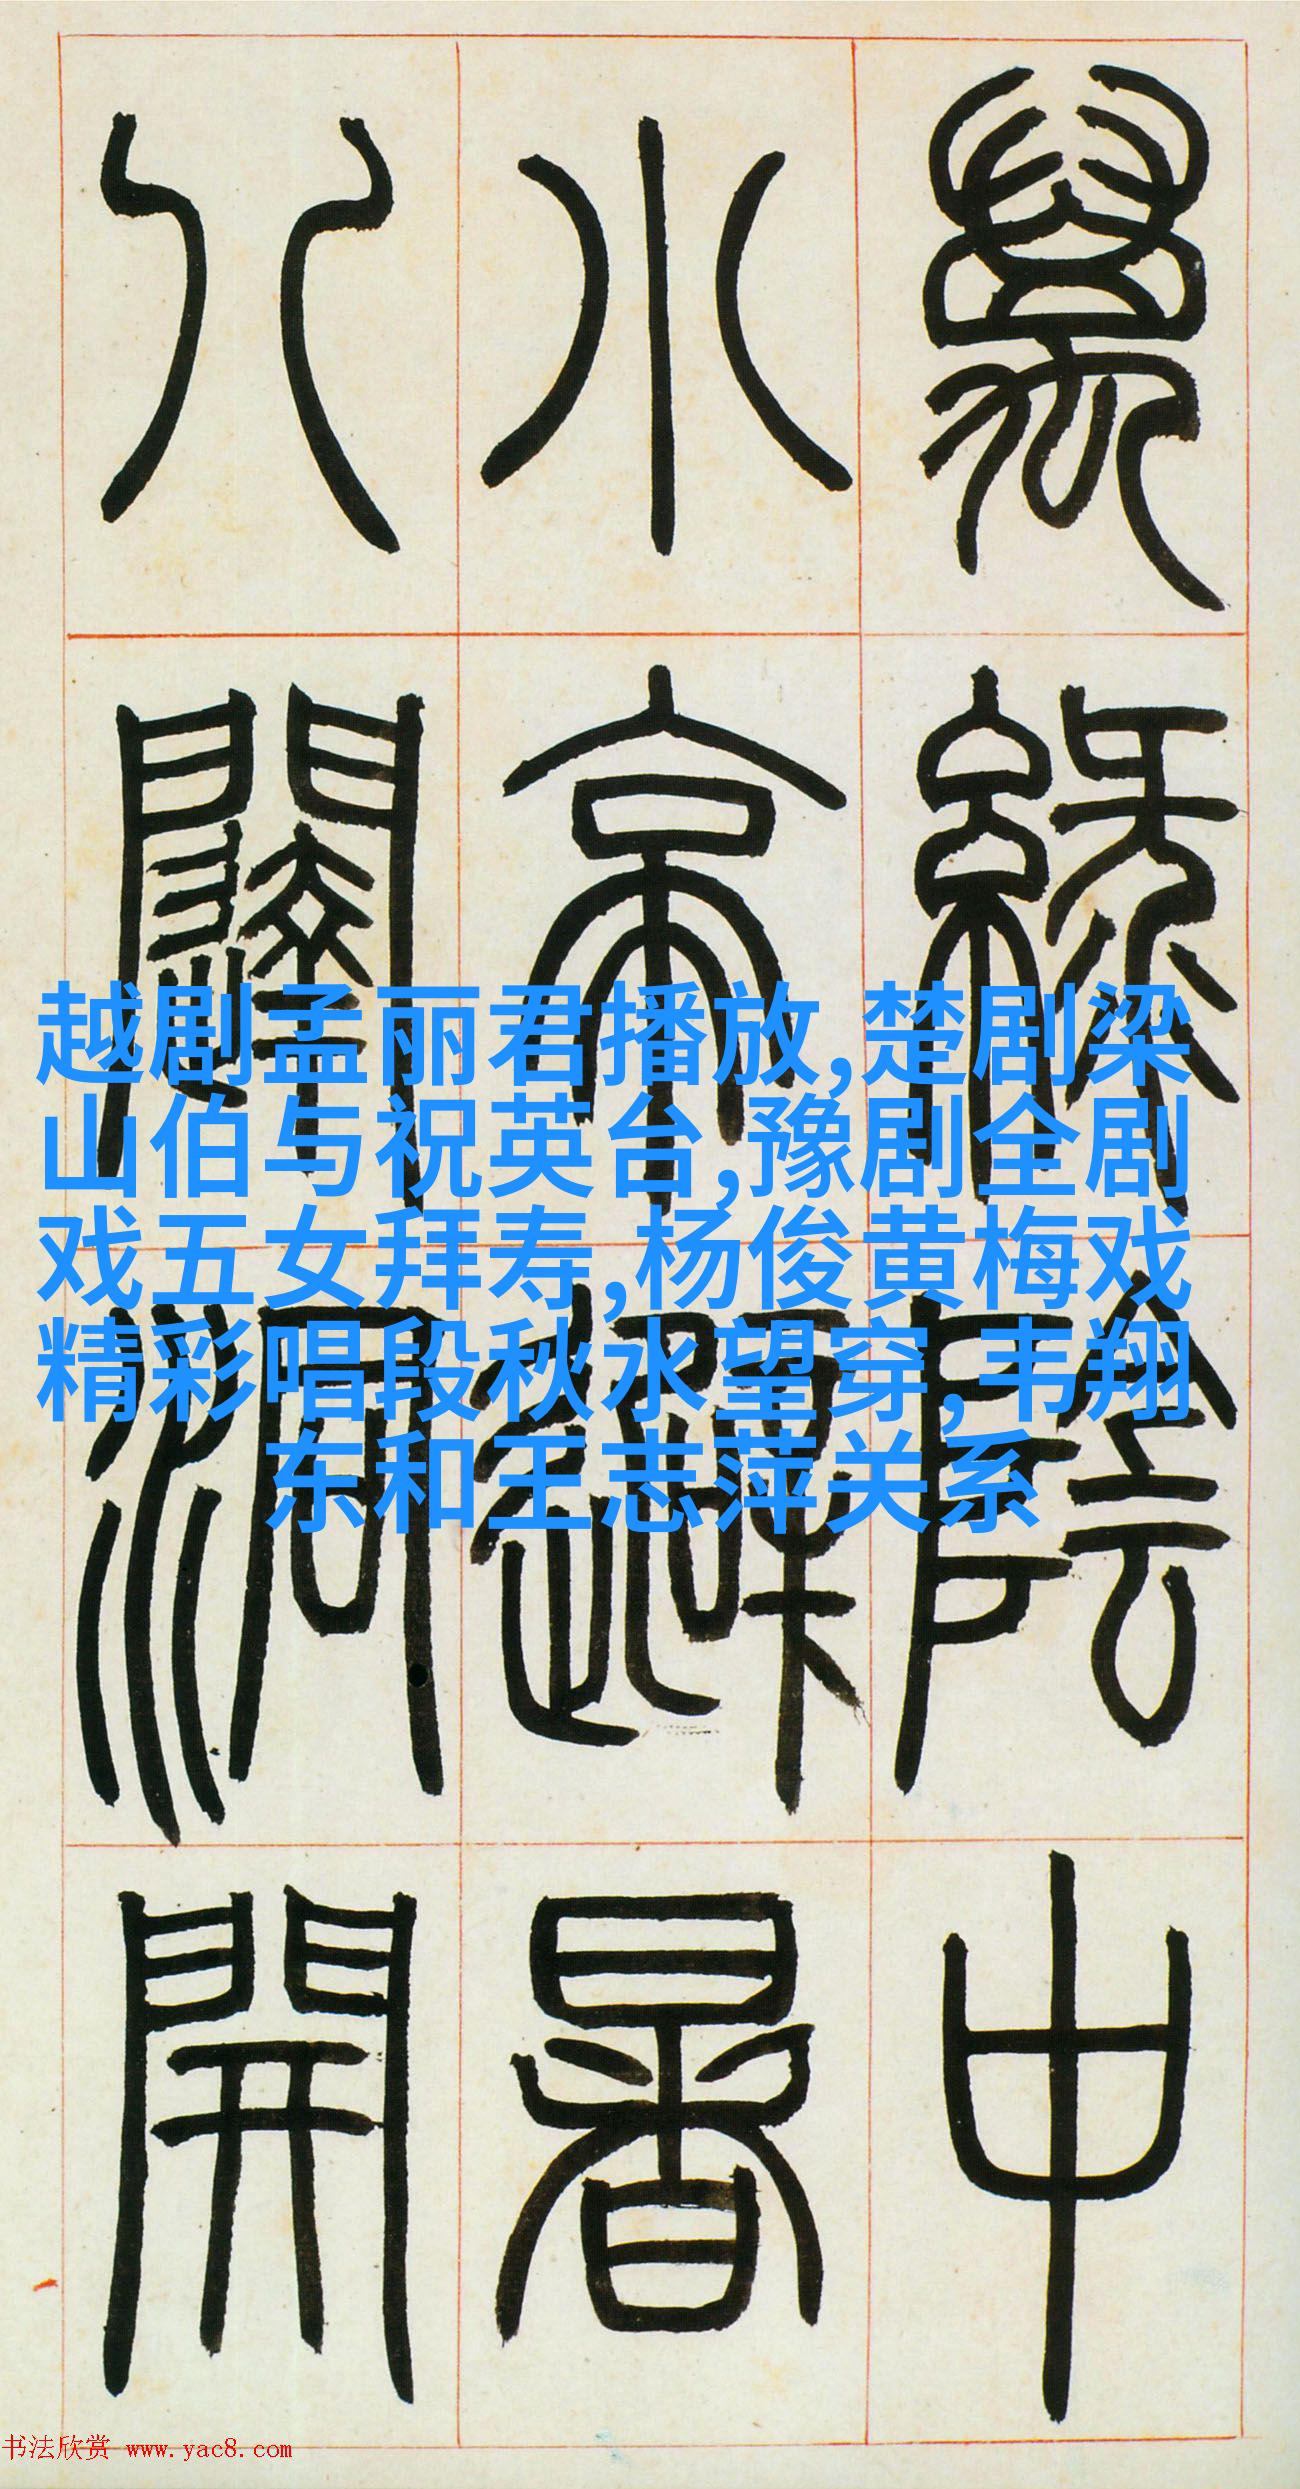 萬綠陰中
小亭避暑
八闥洞開
越剧孟丽君播放,楚剧梁
山伯与祝英台,豫剧全剧
戏五女拜寿,杨俊黄梅戏
精彩唱段秋水望穿,韦翔
东和王志萍关系
书法欣赏 www.yac8.com